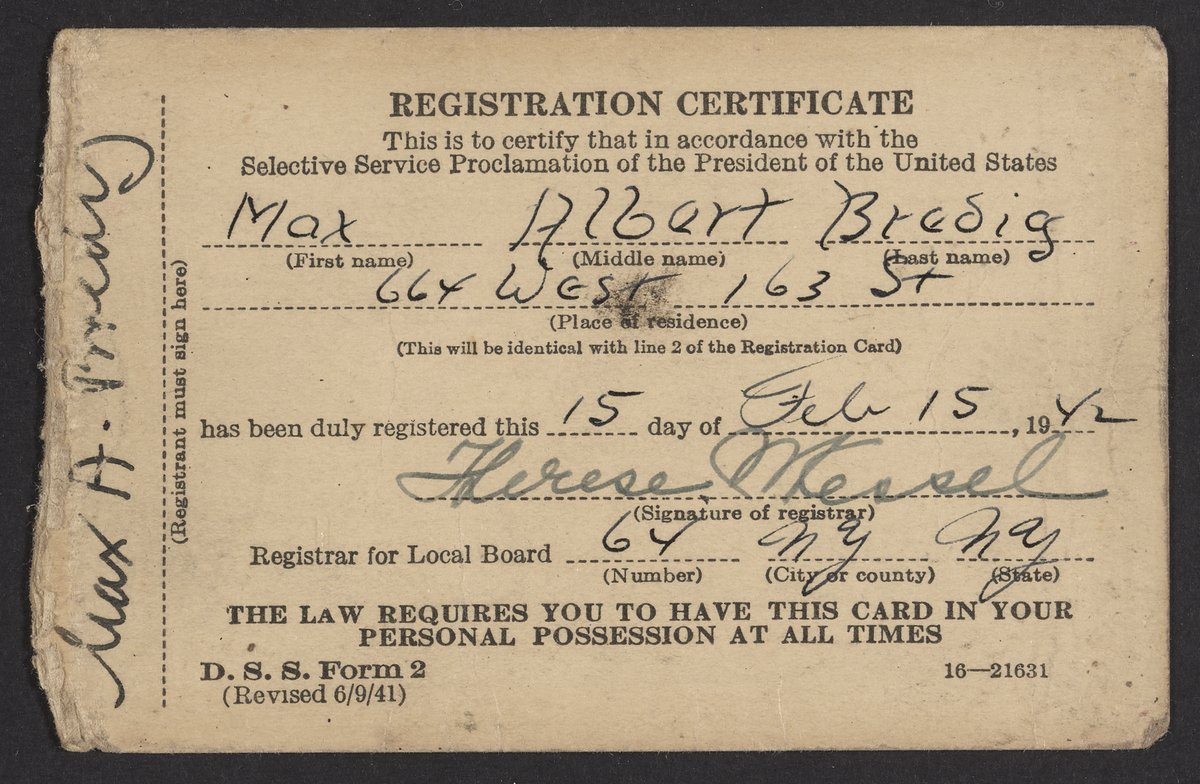 REGISTRATION CERTIFICATE
This is to certify that in accordance with the
Selective Service Proclamation of the President of the United States
Max Albert Bredig
(First name) (Middle name) (Last name)
664 West 163 St
(Place of residence)
(This will be identical with line 2 of the Registration Card)
has been duly registered this 15 day of Feb 15, 1942
Therese Wessel
(Signature of registrar)
Registrar for Local Board 64 NY NY
(Number) (City or county) (State)
THE LAW REQUIRES YOU TO HAVE THIS CARD IN YOUR
PERSONAL POSSESSION AT ALL TIMES
D. S. S. Form 2 16—21631
(Revised 6/9/41)
(Registrant must sign here)
Max A. Bredig